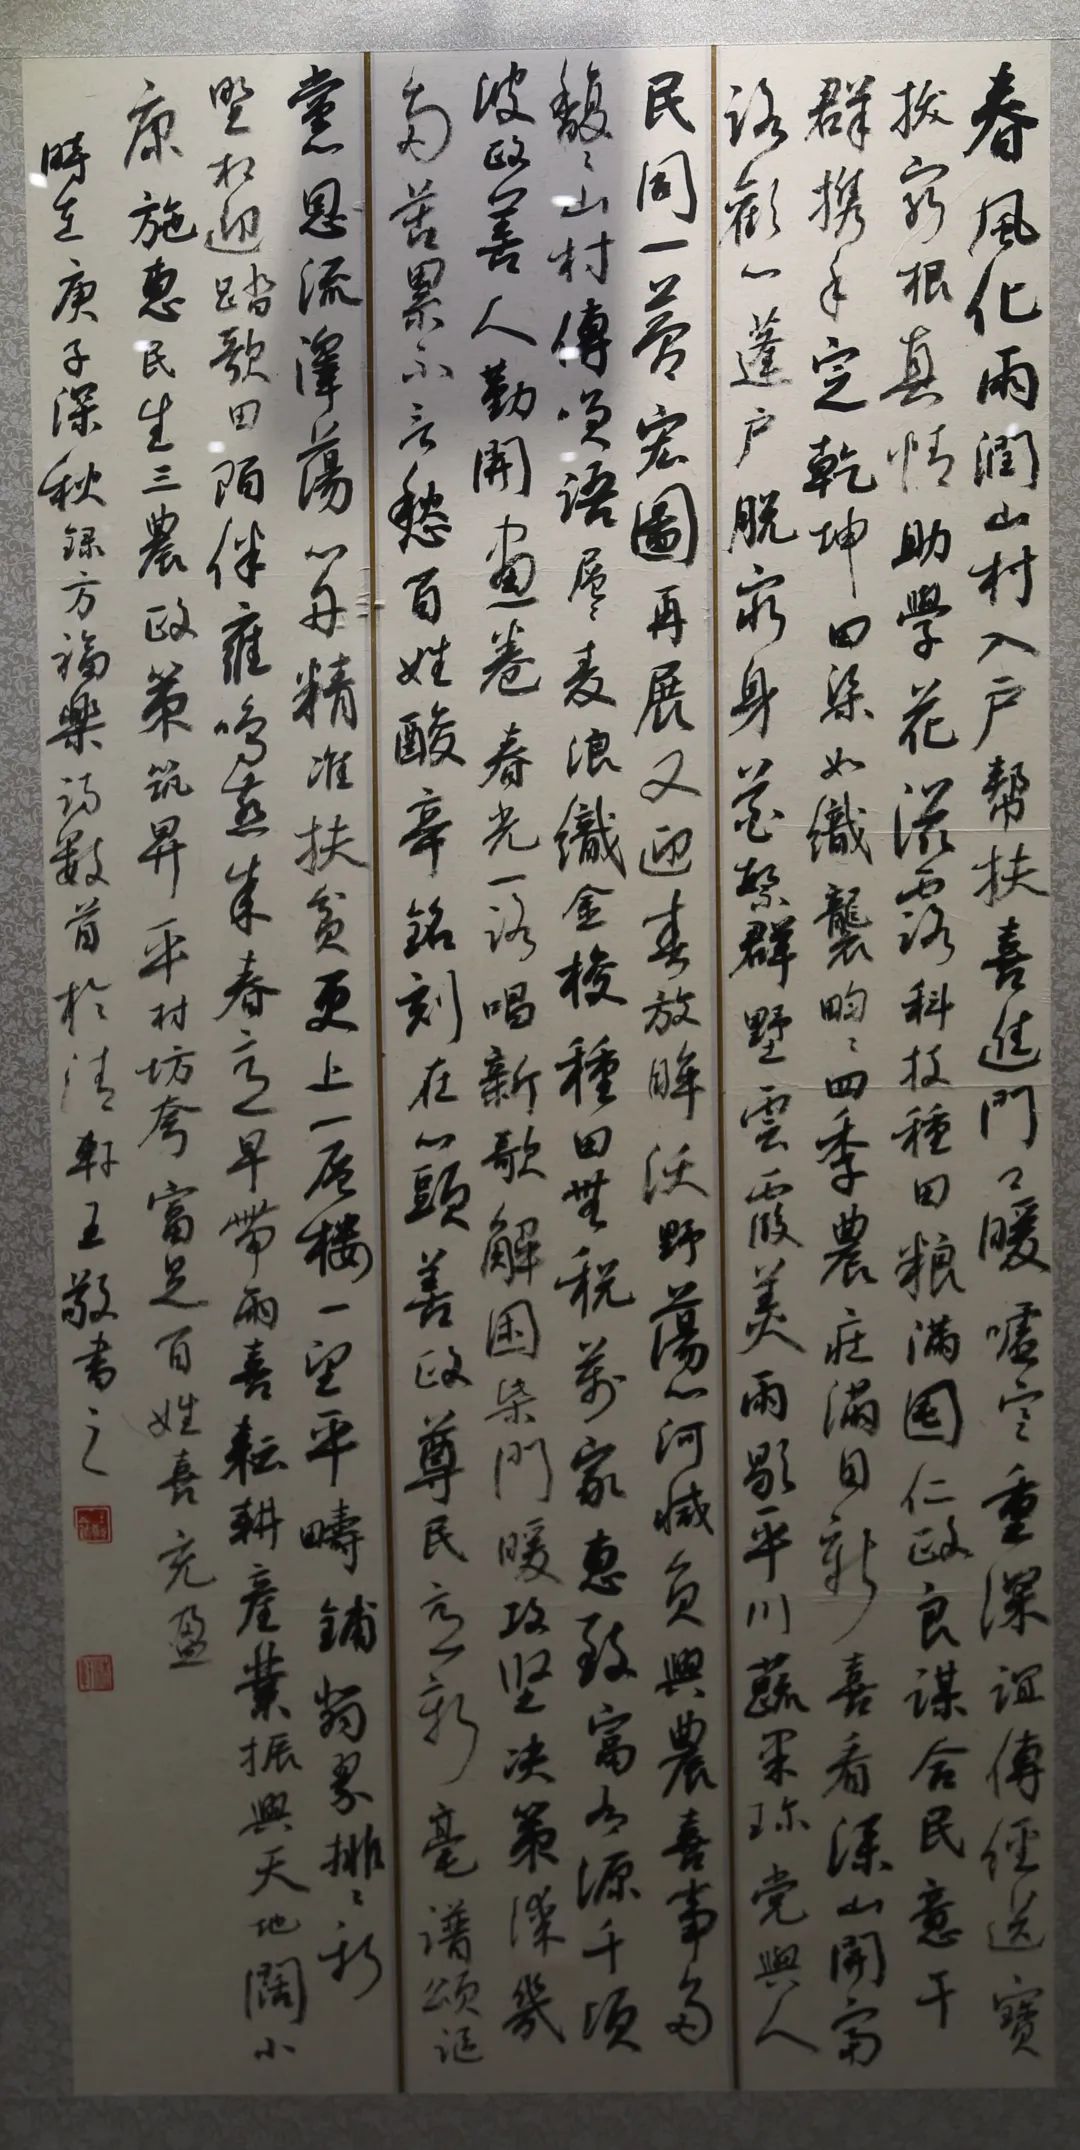 春風化雨潤山村入户幫扶喜進門口暖噓寒重深誼傳經送寶
拔窮根真情助學花滋露科技種田粮满囤仁政良謀合民意干
群携手定乾坤田渠如織襲畇畇四季農莊滿目新喜看深山開富
路歡心蓬户脱窮身犖群野雲霞美雨歇平川蔬果珍党與人
民同一夢宏圖再展又迎春放眸沃野蕩心河减負興農喜事多
馥馥山村傳笑語層層麦浪織金梭種田無税萬家惠致富有源千頃
波政善人勤開畫卷春光一路唱新歌解困柴門暖攻坚决策深幾
多苦累不言愁百姓酸辛銘刻在心頭善政尊民意新毫譜頌謳
党恩流澤蕩心舟精准扶貧更上一層樓一望平疇鋪翡翠排排新
墅松迎踏歌田陌伴雞鳴燕来春意早帶雨喜耘耕産業振興天地闊小
康施惠民生三農政策筑昇平村坊夸富足百姓喜充盈
時在庚子深秋録方福樂詩數首於清軒王敬書之